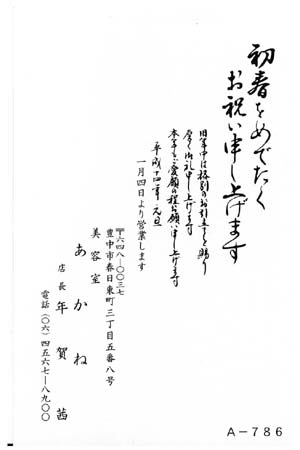 初春をめでたく
お祝い申し上げます
旧年中は格別のお引立を賜り
厚く御礼申し上げます
本年もご愛顧の程お願い申し上げます
平成十四年元旦
一月四日より営業します
〒六四八―〇〇三七
豊中市春日東町三丁目五番八号
美容室
あかね
店長 年賀茜
電話(〇六)四五六七―八九〇〇
A-786